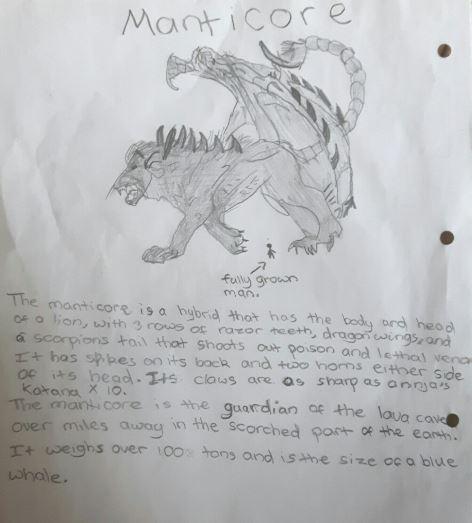 Manticore
fully grown
man.
The manticore is a hybrid that has the body and head
of a lion, with 3 rows of razor teeth, dragon wings, and
a scorpions tail that shoots out poison and lethal venom
It has spikes on its back and two horns either side
of its head. Its claws are as sharp as a ninja's
Katana x 10.
The manticore is the guardian of the lava cave
over miles away in the scorched part of the earth.
It weighs over tons and is the size of a blue
whale.